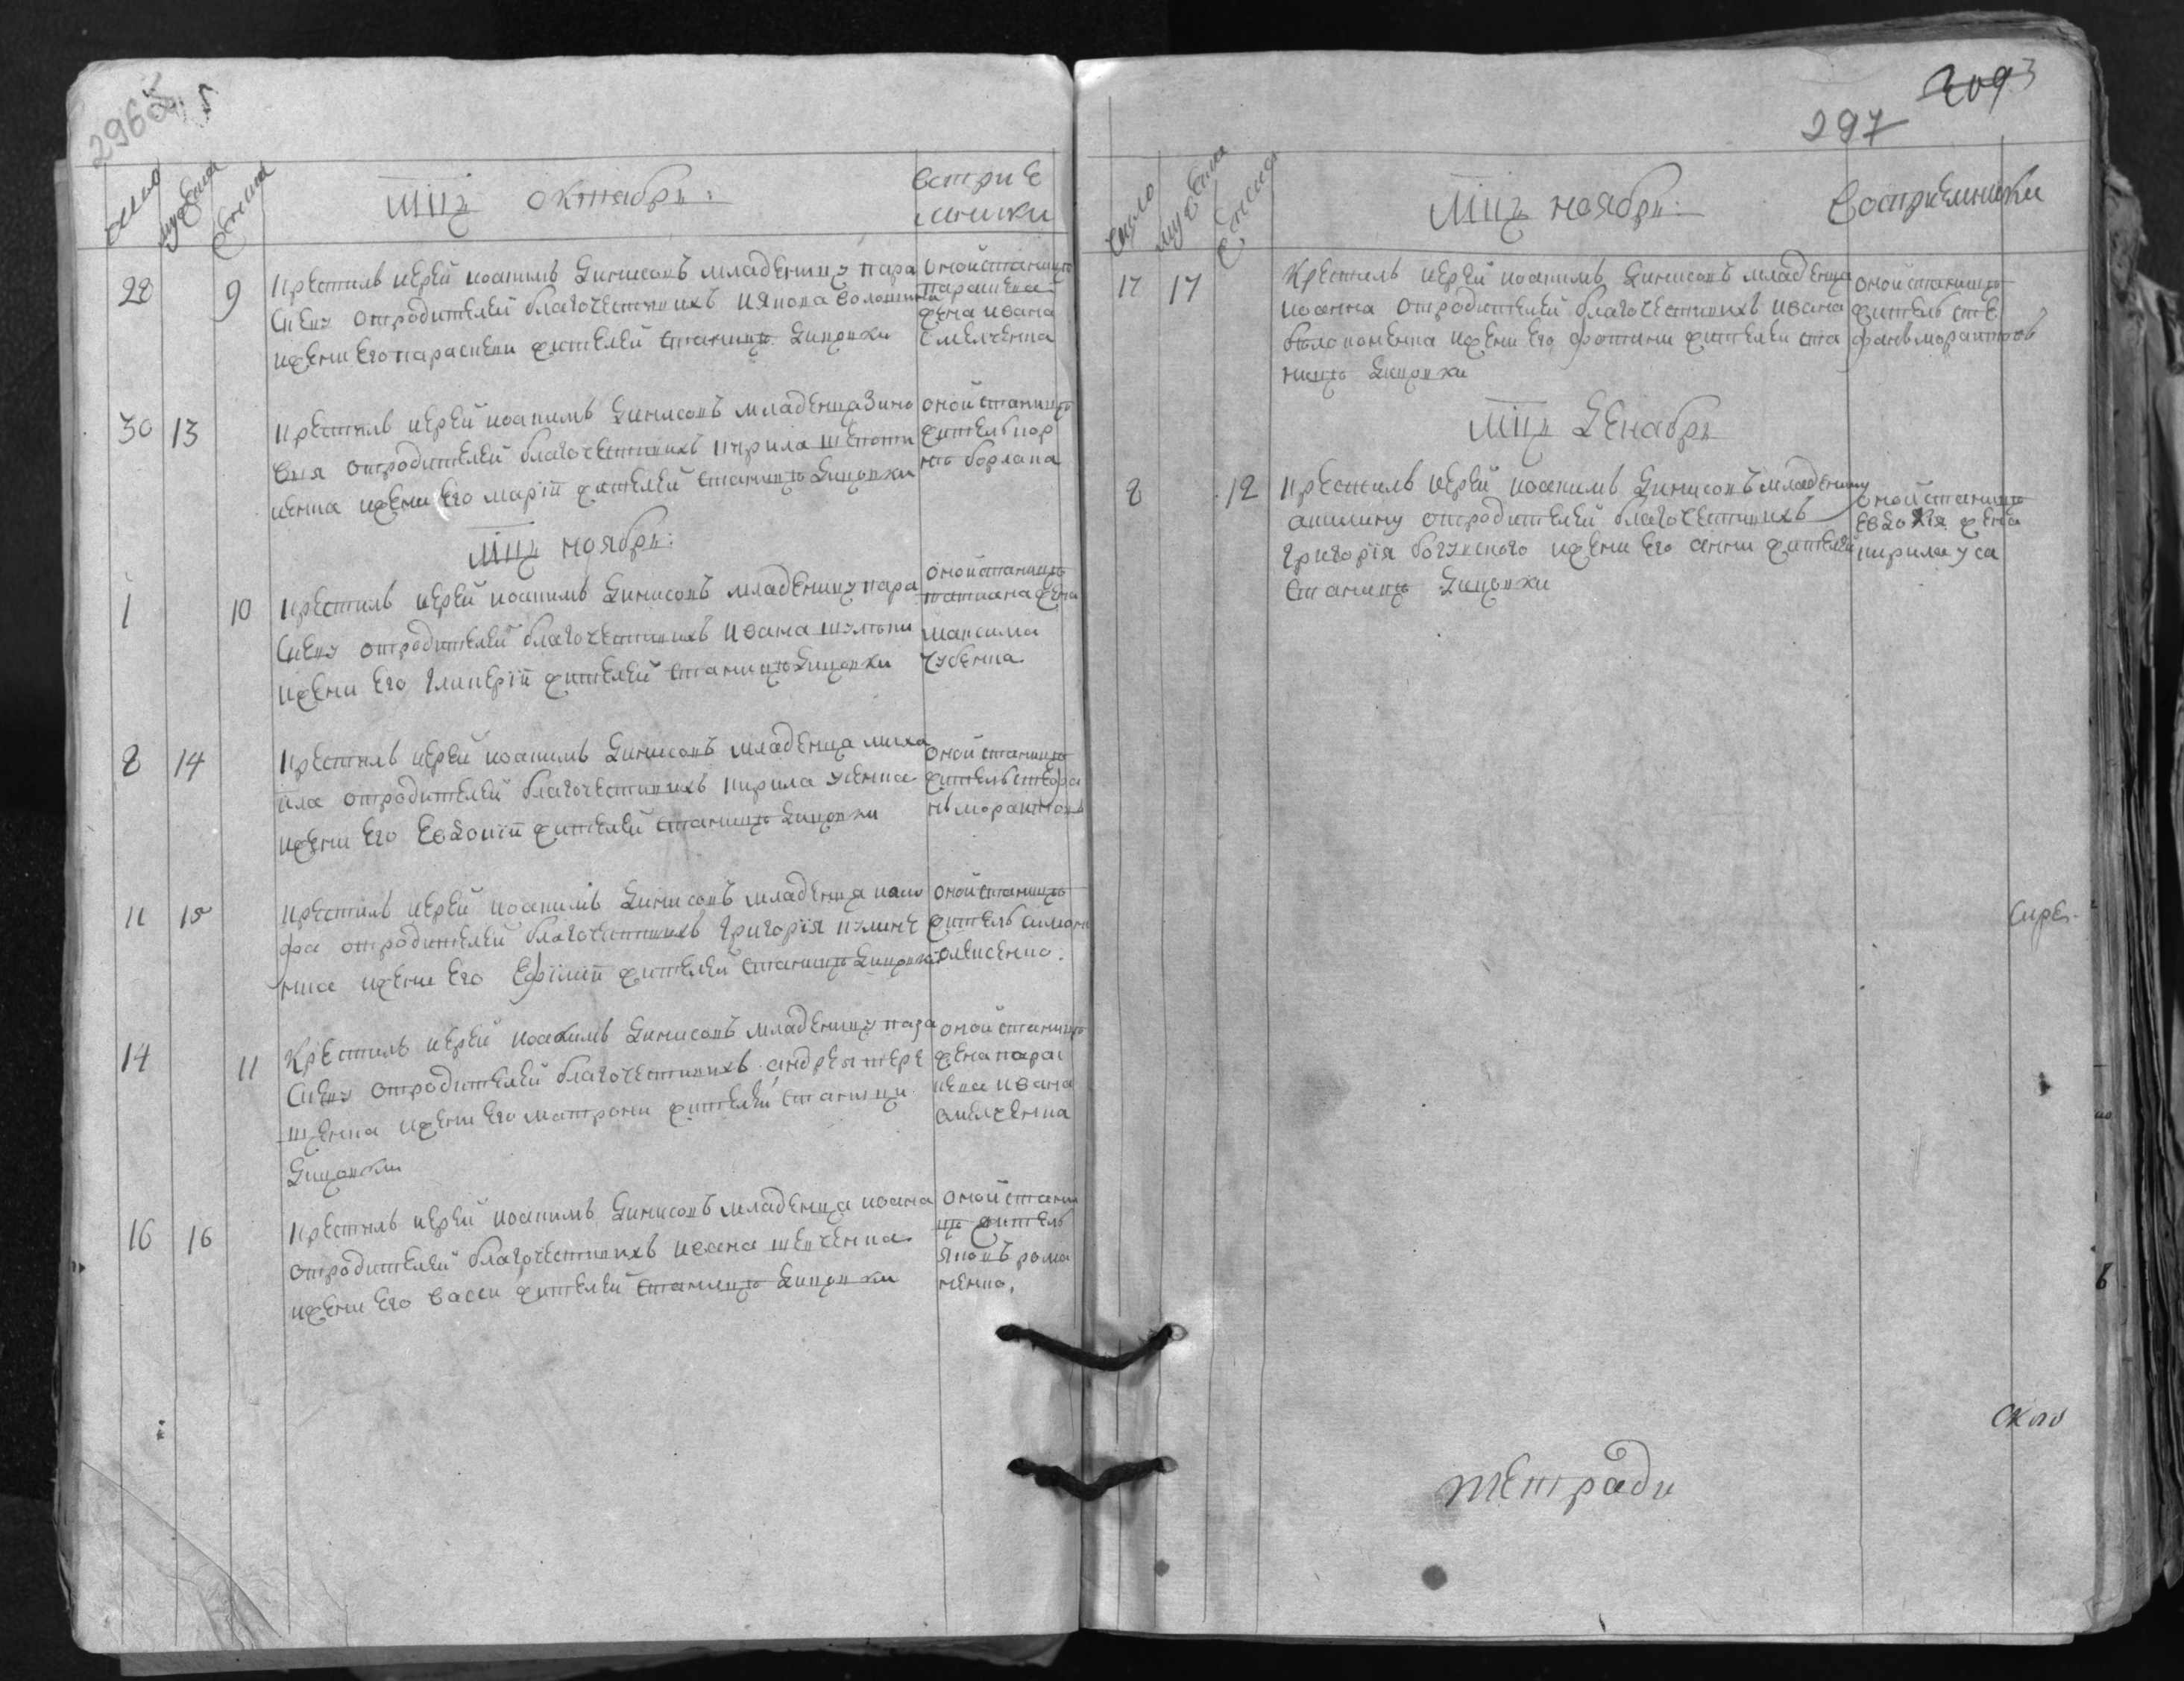 296
число
мужеска
женска
Мцъ октябрь:
Восприе
мники
28
9
Крестилъ иерей иоакимъ Динисовъ младеницу пара
скеву отродителей благочестивихъ Иякова Волошина
ижени его параскеви жителей станици Дицовки
оной станицѣ
параскева
жена ивана
Емелченка
30
13
Крестилъ иерей иоакимъ Динисовъ младенца Зино
вия отродителей благочестивихъ кирила шепоти
ленка ижени его маріи жителей станицѣ Дицовки
оной станицѣ
житель кор
нѣ борлака
Мцъ ноябрь:
1
10
Крестилъ иерей иоакимъ Динисовъ младеницу пара
скеву отродителей благочестивихъ ивана шульги
ижени его гликеріи жителей станицѣ Дицовки
оной станицѣ
татиана жена
максима
чубенка
8
14
Крестилъ иерей иоакимъ Динисовъ младенца миха
ила отродителей благочестивихъ кирила усенка
ижени его Евдокіи жителей станицѣ Дицовки
оной станицѣ
житель стефа
нъ морактовъ
11
15
Крестилъ иерей иоакимъ Динисовъ младенца иоси
фа отродителей благочестивихъ григорія кулине
нка ижени его Ефіміи жителей станицѣ Дицовки
оной станицѣ
житель симонъ
олексенко.
14
11
Крестилъ иерей иоакимъ Динисовъ младеницу пара
скеву отродителей благочестивихъ андрея тере
щенка ижени его матрони жителей станици
Дицовки
оной станицѣ
жена парас
кева ивана
омелченка
16
16
Крестилъ иерей иоакимъ Динисовъ младенца иоана
отродителей благочестивихъ ивана шевченка
ижени его васси жителей станицѣ Дицовки
оной стани
цѣ житель
яковъ рома
ненко,
297
число
мужеска
женска
Мцъ ноябрь:
Восприемники
17
17
Крестилъ иерей иоакимъ Динисовъ младенца
иоанна отродителей благочестивихъ ивана
белоконенка ижени его фотини жителей ста
ницѣ Дицовки
оной станицѣ
житель сте
фанъ морактовъ
Мцъ Декабрь
8
12
Крестилъ иерей иоакимъ Динисовъ младеницу
акилину отродителей благочестивихъ
григорія богуского ижени его анни жителей
станицѣ Дицовки
оной станицѣ
Евдокія жена
кирила уса
скре-
тетради